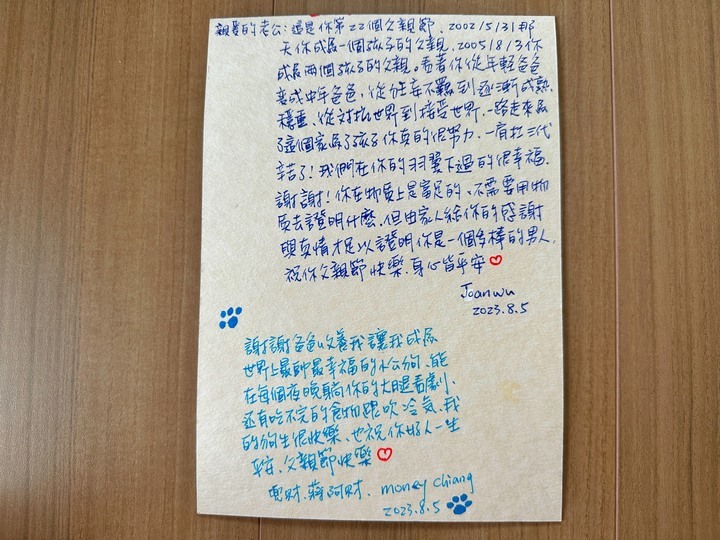 親愛的老公:這是你第22個父親節.2002/5/31那
天你成為一個孩子的父親.2005/8/3你
成為兩個孩子的父親。看著你從年輕爸爸
變成中年爸爸,從年不到逐漸成熟
穩重、從對抗世界到接受世界.一路走來為
了這個家為了孩子你真的很努力.一肩扛三代
辛苦了!我們在你的羽翼下過的很幸福.
謝謝!你在物質上是富足的、不需要用物
質去證明什麼.但由家人給你的感謝
與真情才足以證明你是一個多棒的男人.
祝你父親節快樂.身心皆平安
Joanwu
2023.8.5
謝謝爸爸收養我讓我成為
世界上最帥最幸福的水公狗.能
在每個夜晚躺你的大腿看劇.
還有吃不完的食物跟吹冷氣.我
的狗生很快樂、也祝你好人一生
平安.父親節快樂
兜財.蔣阿財.money chiang
2023.8.5